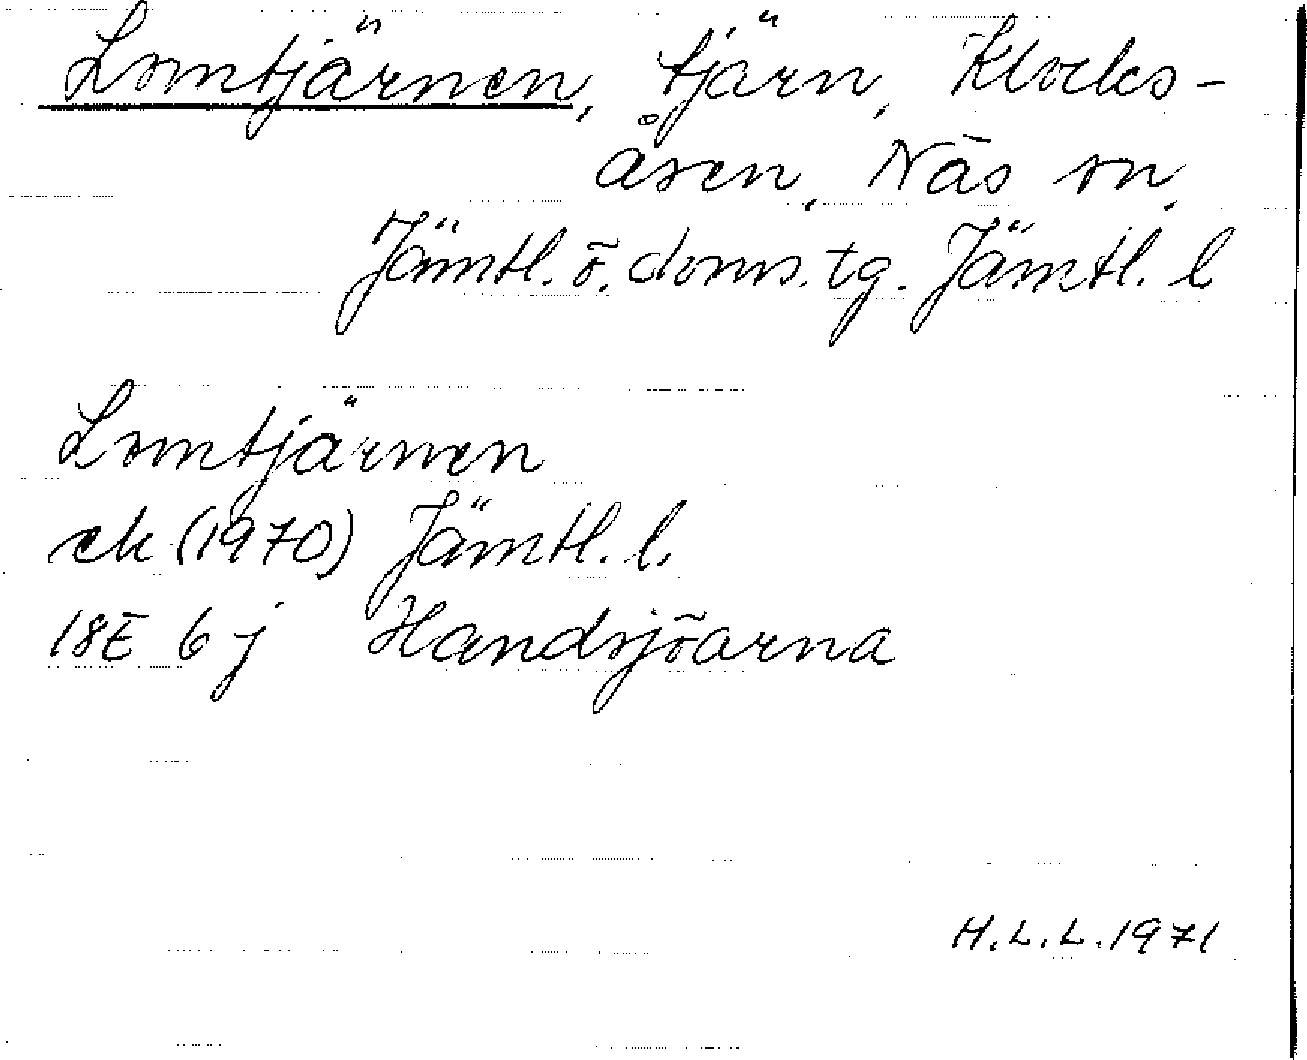 Lomtjärnen, tjärn, Klocks-
åsen, Näs sn,
Jämtl. ö. doms. tg. Jämtl. l
Lomtjärnen
ek (1970) Jämtl. l.
18E 6j Handsjöarna
H.L.L. 1971